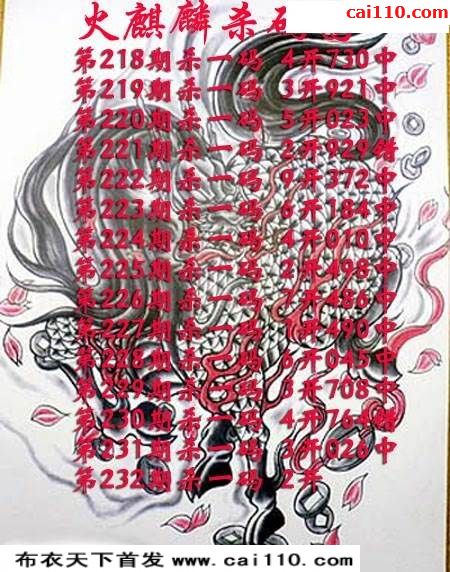 cai110.com
火麒麟杀码
第218期杀一码 4开730中
第219期杀一码 3开921中
第220期杀一码 5开023中
第221期杀一码 2开929错
第222期杀一码 9开372中
第223期杀一码 6开184中
第224期杀一码 4开010中
第225期杀一码 2开498中
第226期杀一码 7开486中
第227期杀一码 1开490中
第228期杀一码 6开045中
第229期杀一码 3开708中
第230期杀一码 4开764错
第231期杀一码 3开026中
第232期杀一码 2开
布衣天下首发 www.cai110.com